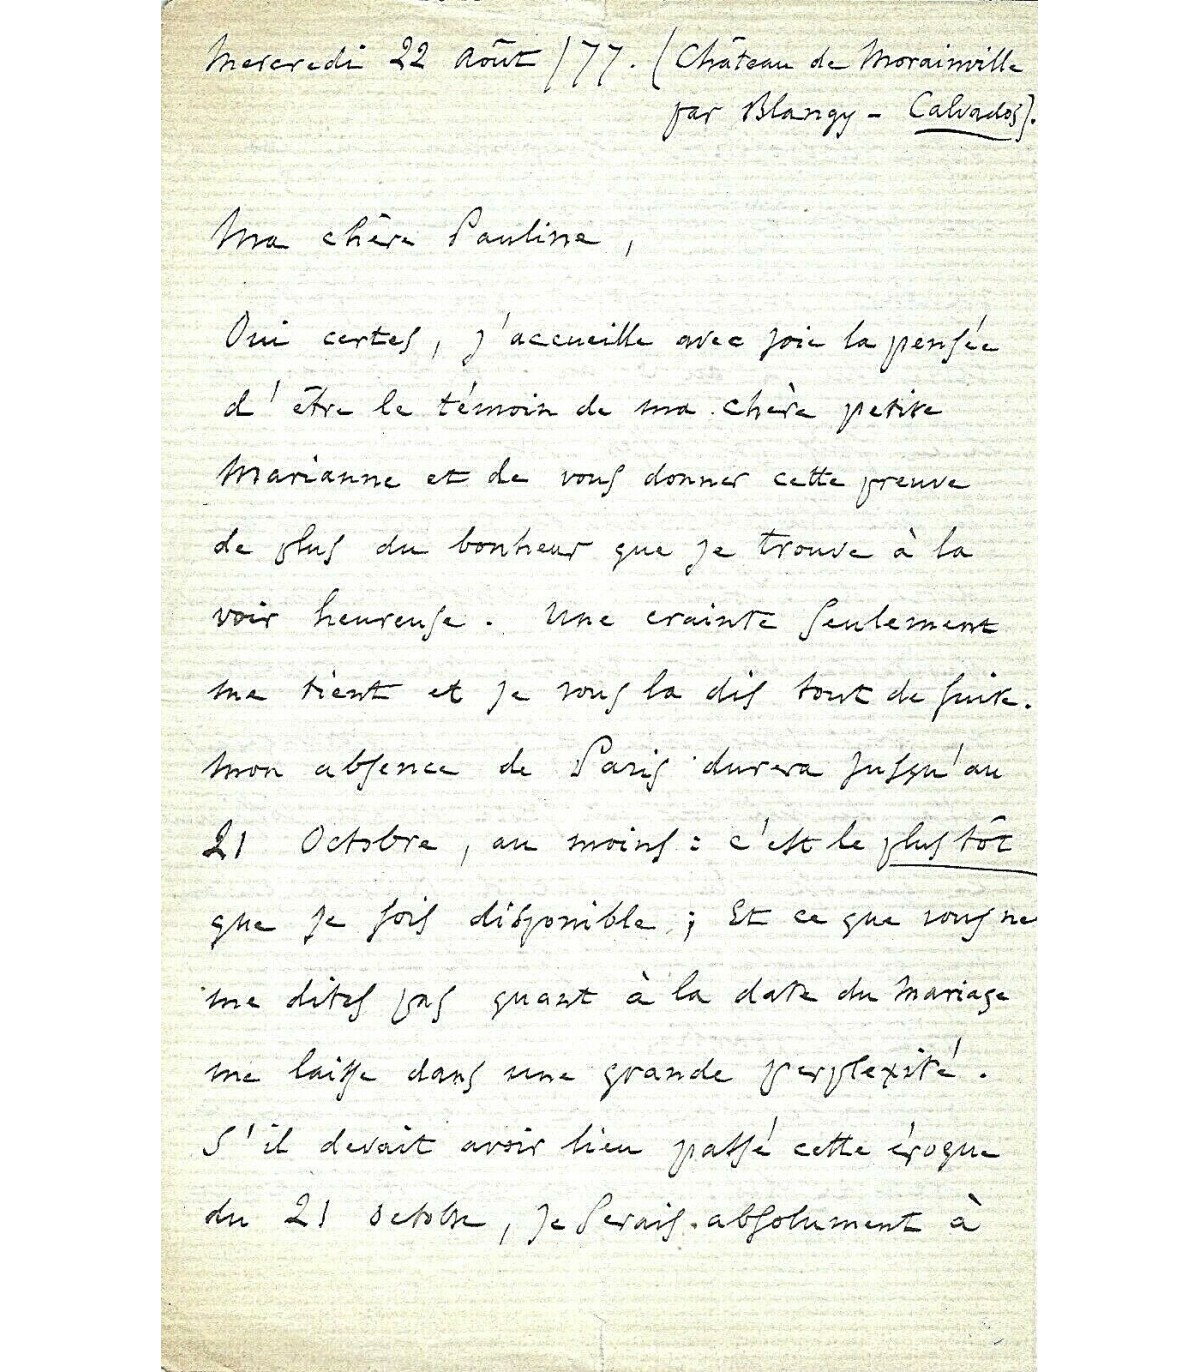 Mercredi 22 Août /77. (Château de Morainville
par Blangy - Calvados).
Ma chère Pauline,
Oui certes, j'accueille avec joie la pensée
d'être le témoin de ma chère petite
Marianne et de vous donner cette preuve
de plus du bonheur que je trouve à la
voir heureuse. Une crainte seulement
me tient et je vous la dis tout de suite.
Mon absence de Paris durera jusqu'au
21 Octobre, au moins : c'est le plus tôt
que je sois disponible ; Et ce que vous ne
me dites pas quant à la date du mariage
me laisse dans une grande perplexité.
S'il devait avoir lieu passé cette époque
du 21 octobre, je serais absolument à